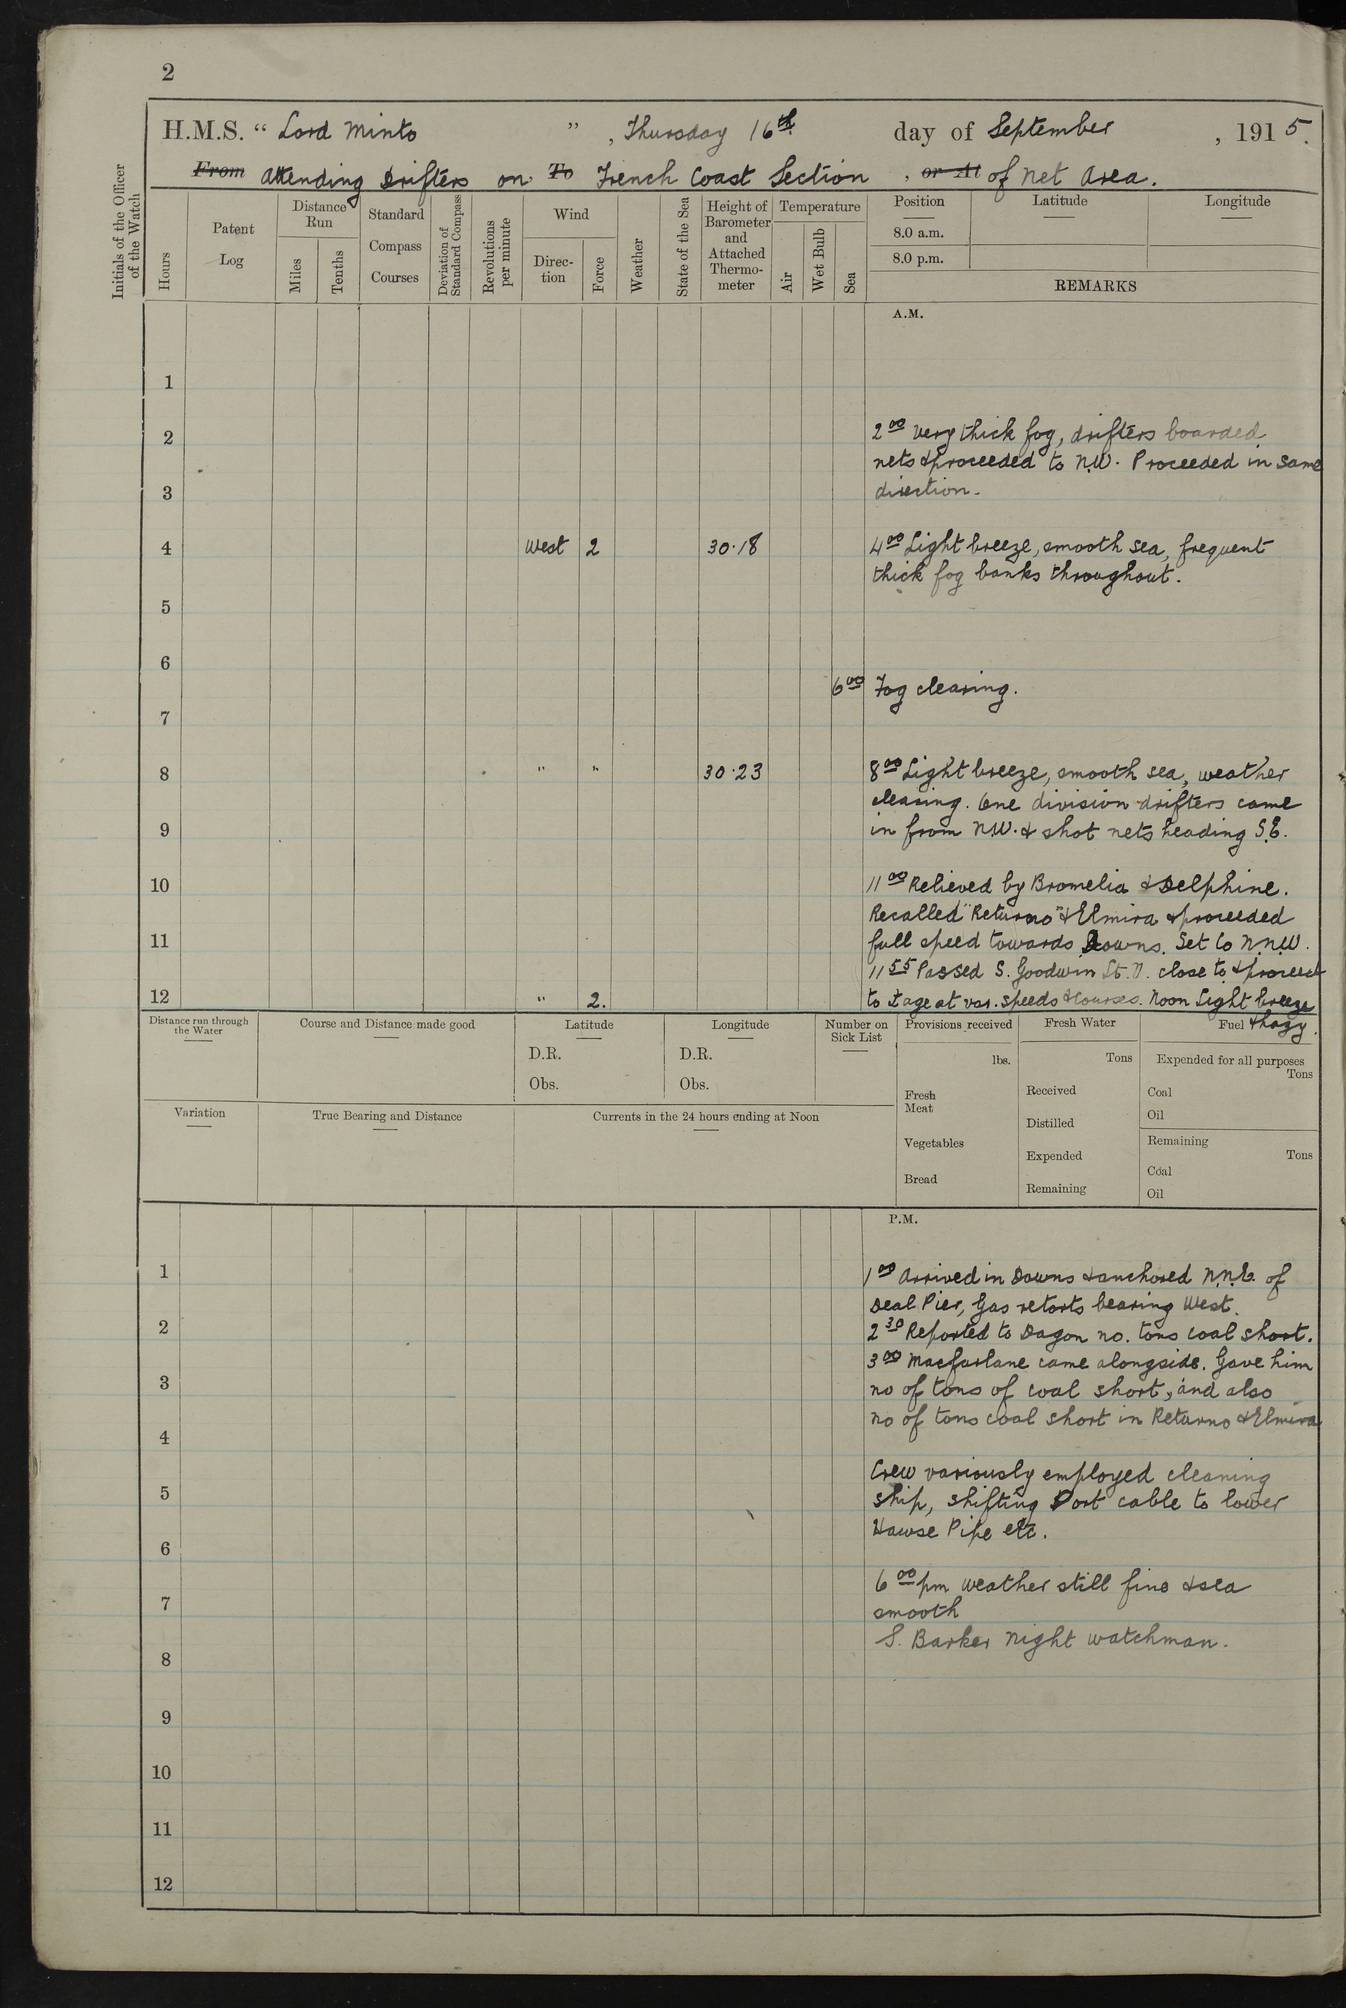 2
H.M.S. " Lord Minto ", Thursday 16th day of September, 1915.
From attending Drifters on To French Coast Section, or At of Net Area.
Initials of the Officer of the Watch
Hours
Patent Log
Distance Run
Miles
Tenths
Standard Compass Courses
Deviation of Standard Compass
Revolutions per minute
Wind
Direction
Force
Weather
State of the Sea
Height of Barometer and Attached Thermometer
Temperature
Air
Wet Bulb
Sea
Position
8.0 a.m.
8.0 p.m.
Latitude
Longitude
REMARKS
A.M.
1
2
2 00 Very thick fog, drifters boarded
nets & proceeded to N.W. Proceeded in same
3
direction.
4 West 2 30.18
4 00 Light breeze, smooth sea, frequent
thick fog banks throughout.
5
6
6 00 Fog clearing.
7
8 " " 30.23
8 00 Light breeze, smooth sea, weather
clearing. One division drifters came
9
in from N.W. & shot nets heading S.E.
10
11 00 Relieved by Bromelia & Delphine.
Recalled "Returno" & Elmira & proceeded
11
full speed towards Downs. Set Co N.N.W.
11 55 Passed S. Goodwin Lt. V. close to & proceed
12 " 2.
to ±age at var. speeds & courses. Noon Light breeze
& hazy.
Distance run through the Water
Course and Distance made good
Latitude
D.R.
Obs.
Longitude
D.R.
Obs.
Number on Sick List
Provisions received
lbs.
Fresh Meat
Vegetables
Bread
Fresh Water
Tons
Received
Distilled
Expended
Remaining
Fuel
Expended for all purposes
Tons
Coal
Oil
Remaining
Tons
Coal
Oil
Variation
True Bearing and Distance
Currents in the 24 hours ending at Noon
P.M.
1
1 00 Arrived in Downs & anchored N.N.E. of
Deal Pier, Gas retorts bearing West.
2
2 30 Reported to Dagon no. tons coal short.
3 00 Macfarlane came alongside. Gave him
3
no of tons of coal short, and also
no of tons coal short in Returno & Elmira
4
Crew variously employed cleaning
5
ship, shifting Port cable to lower
Hawse Pipe etc.
6
6 00 pm weather still fine & sea
7
smooth
S. Barker night watchman.
8
9
10
11
12